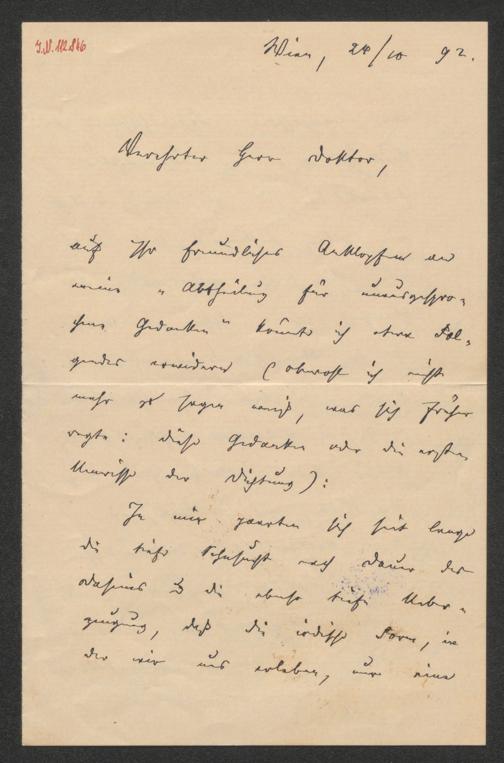 J.N. 112846
Wien, 24/10 92.
Verehrter Herr Doktor,
auf Ihr freundliches Anklopfen an
meine „Abtheilung für unausgespro-
chene Gedanken" könnte ich etwa Fol-
gendes erwidern (obwohl ich nicht
mehr zu sagen weiß, was sich früher
regte: diese Gedanken oder die ersten
Umrisse der Dichtung):
In mir paarten sich seit lange
die tiefe Sehnsucht nach Dauer des
Daseins & die ebenso tiefe Ueber-
zeugung, daß die irdische Form, in
der wir uns erleben, nur eine